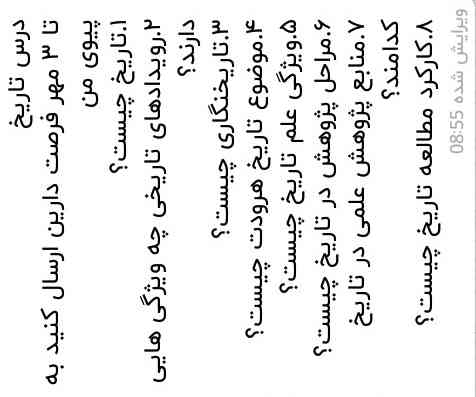 درس تاریخ
تا ۳ مهر فرصت دارین ارسال کنید به
پیوی من
۱.تاریخ چیست؟
۲.رویدادهای تاریخی چه ویژگی هایی
دارند؟
۳.تاریخنگاری چیست؟
۴.موضوع تاریخ هرودت چیست؟
۵.ویژگی علم تاریخ چیست؟
۶.مراحل پژوهش در تاریخ چیست؟
۷.منابع پژوهش علمی در تاریخ
کدامند؟
۸.کارکرد مطالعه تاریخ چیست؟
ویرایش شده 08:55